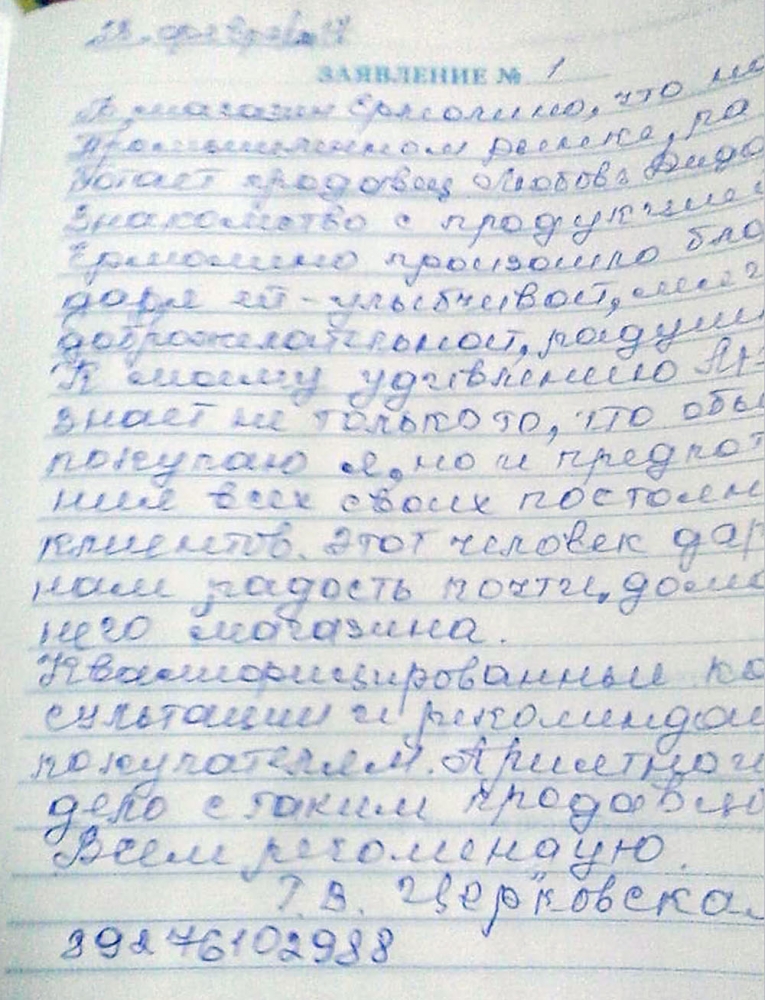 28. февраля 17
ЗАЯВЛЕНИЕ № 1
В магазин Ермолино, что на
Промышленном рынке, ра
ботает продавец Любовь
Знакомство с продукцией
Ермолино произошло бла
даря ей - улыбчивой,
доброжелательной, радуш
К моему удивлению
знает не только то, что обы
покупаю я, но и предпоч
ния всех своих постоян
клиентов. Этот человек дар
нам радость почти, дома
него магазина.
Квалифицированные ко
сультации и рекомендац
покупателям. Приятно и
дело с таким продавцо
Всем рекомендую.
Т. В. Церковска
89276102988